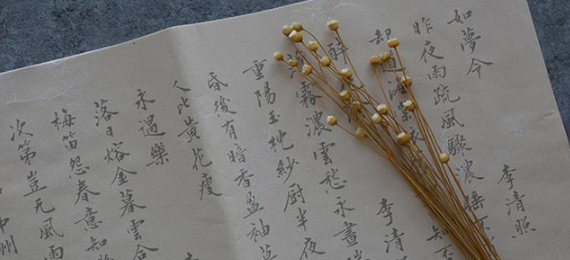 如夢令 李清照
昨夜雨疏風驟濃睡不
却道海棠依 知否
醉 李清
霧濃雲愁永晝瑞
重陽玉枕紗厨半夜
昏後有暗香盈袖莫
人比黃花瘦
永遇樂 李
落日熔金暮雲合
梅笛怨春意知
次第豈无風雨
中州